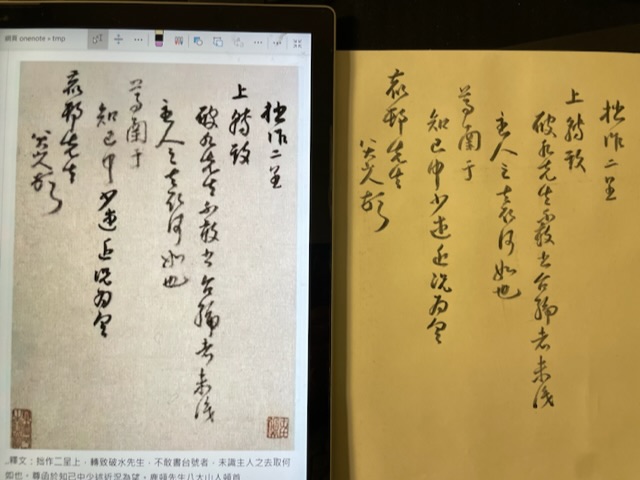 網頁 onenote • tmp
拙作二呈
上轉致
破水先生不敢書台號者未識
主人之去取何如也
尊函于
知己中少述近況為望
鹿邨先生
八大山人頓首
拙作二呈
上轉致
破水先生不敢書台號者未識
主人之去取何如也
尊函于
知己中少述近況為望
鹿邨先生
八大山人頓首
釋文：拙作二呈上，轉致破水先生，不敢書台號者，未識主人之去取何
如也。尊函於知己中少述近況為望。鹿頓先生八大山人頓首